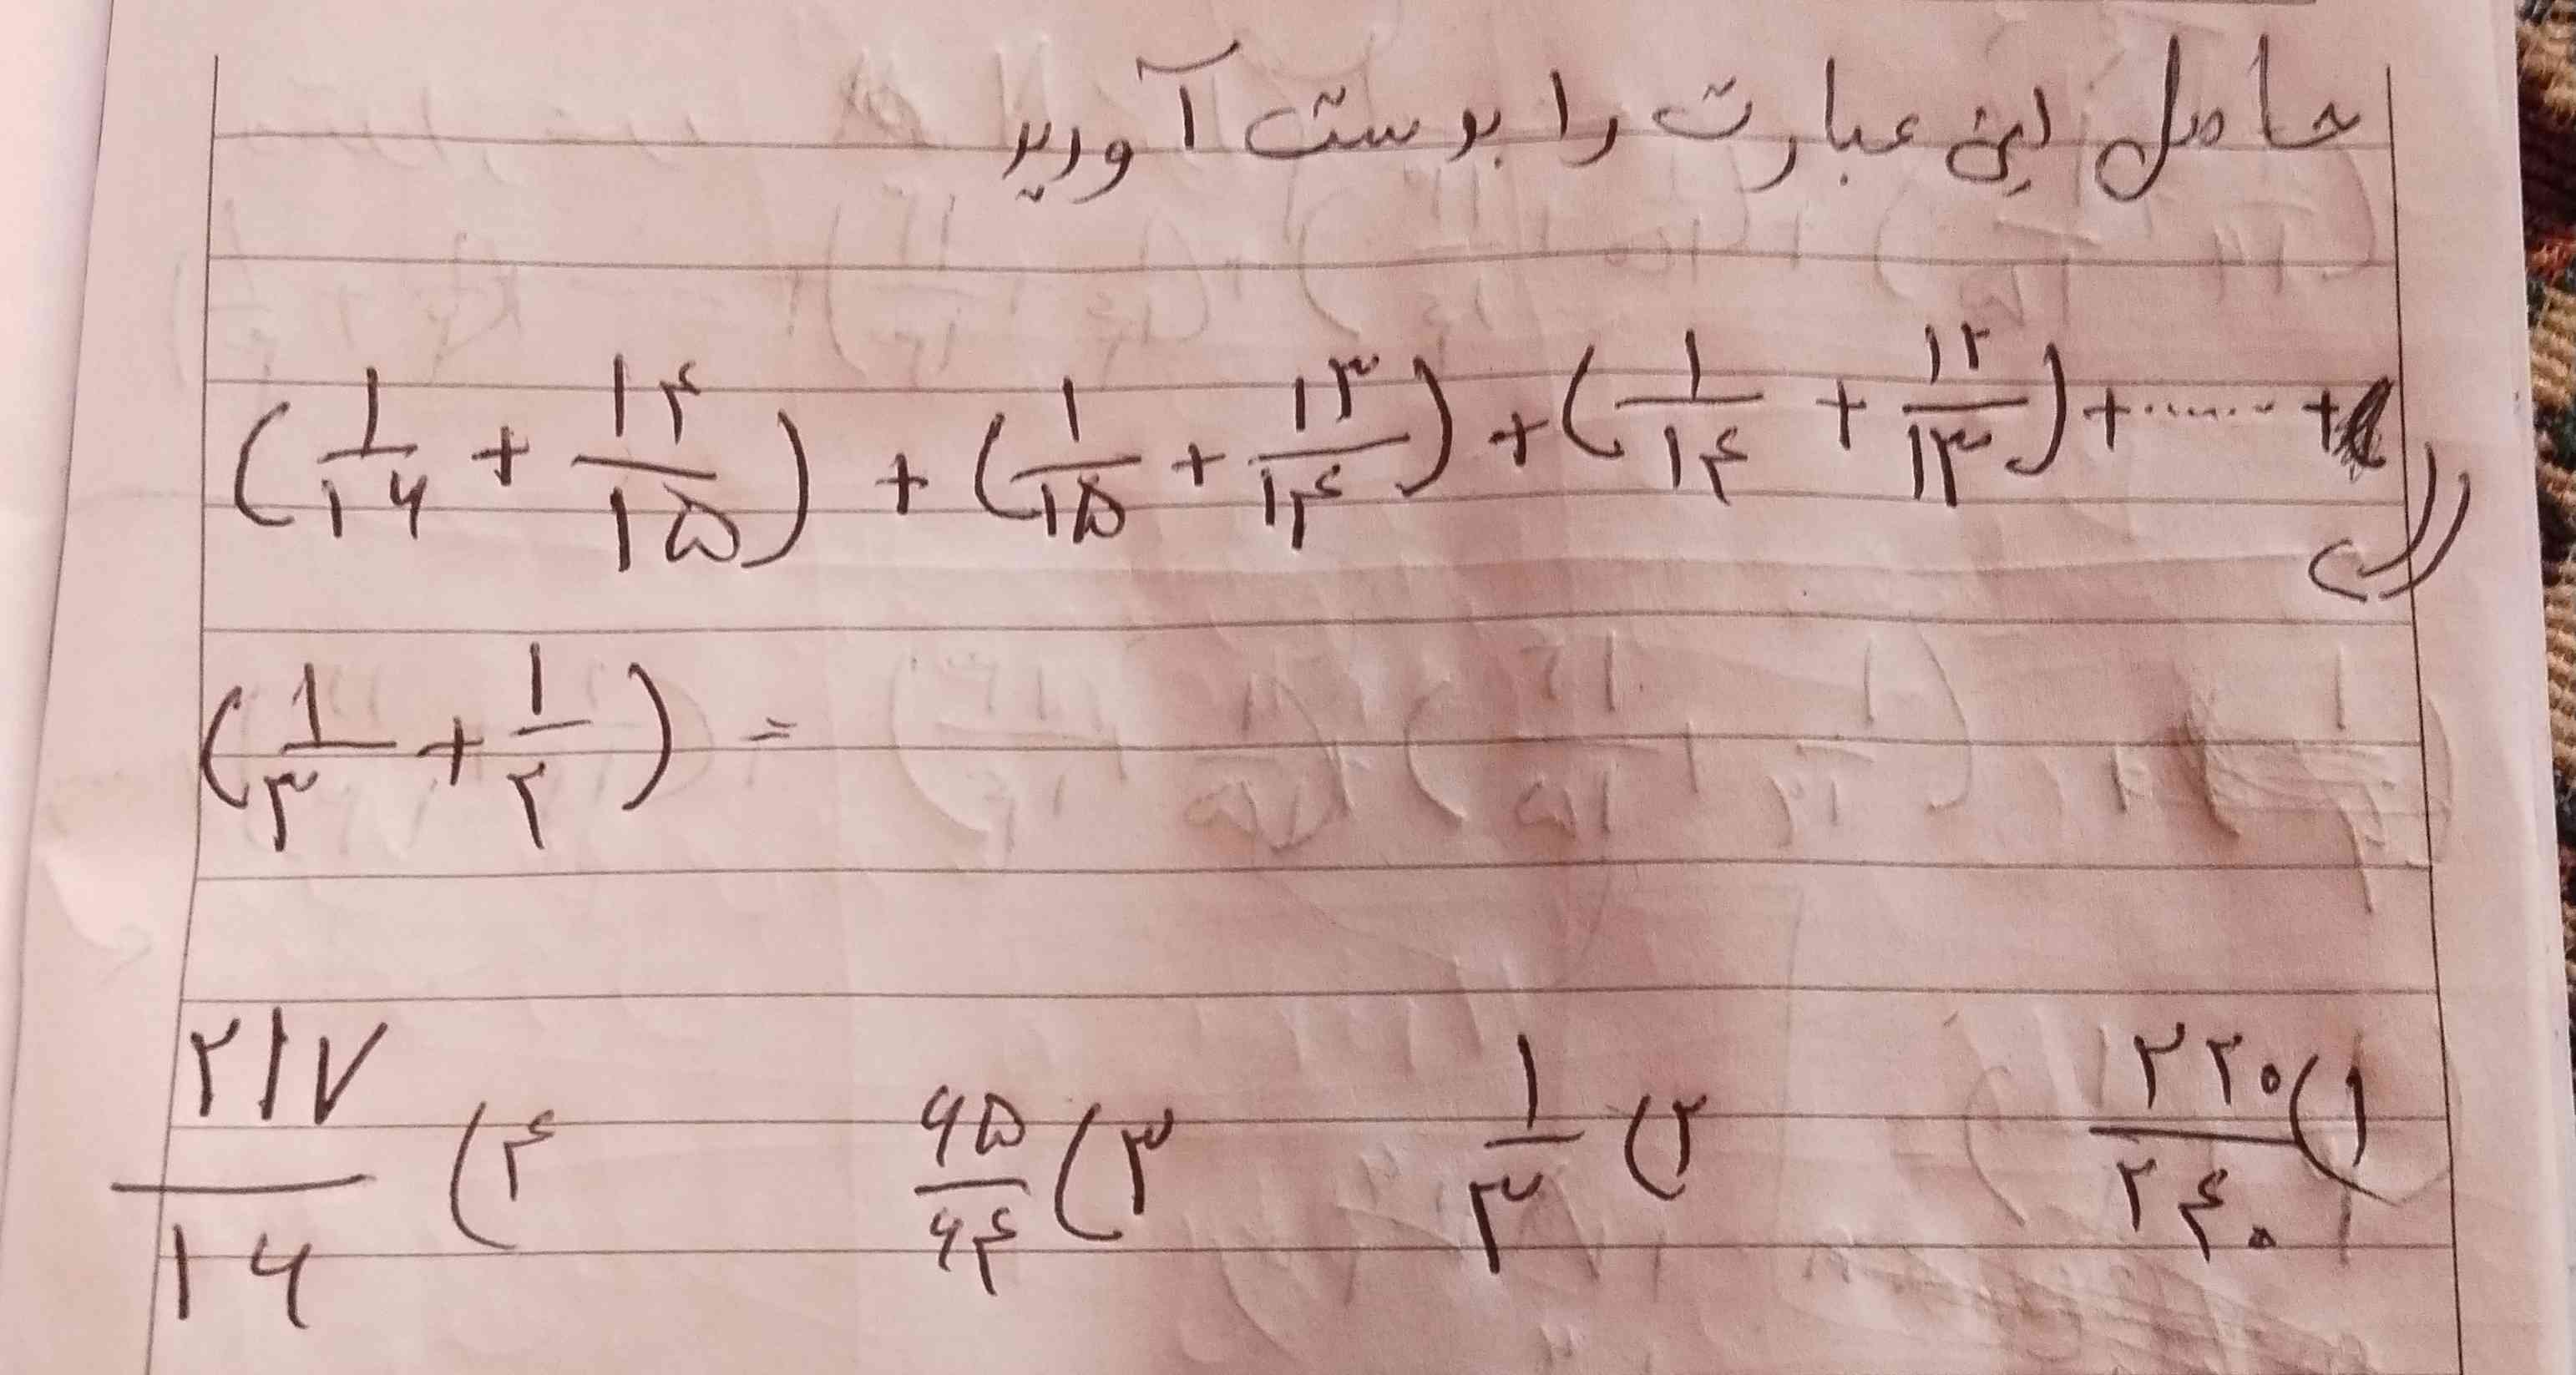 حاصل این عبارت را بدست آورید
(۱/۱۶ + ۱۴/۱۵) + (۱/۱۵ + ۱۳/۱۴) + (۱/۱۴ + ۱۲/۱۳) + ...... +
الف)
(۱/۳ + ۱/۲) =
۱) ۲۲۰/۲۴۰ ۲) ۱/۳ ۳) ۶۵/۶۴ ۴) ۲۱۷/۱۶